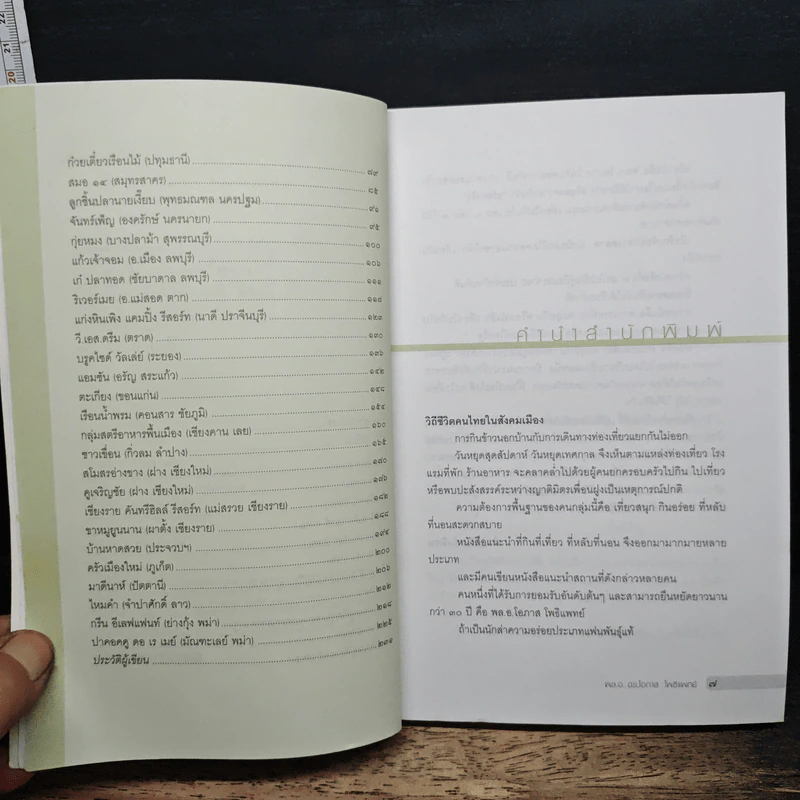 22
21
20
ก๋วยเตี๋ยวเรือนไม้ (ปทุมธานี) ๗๙
สมอ ๑๔ (สมุทรสาคร) ๘๕
ลูกชิ้นปลานายเงี๊ยบ (พุทธมณฑล นครปฐม) ๙๑
จันทร์เพ็ญ (องครักษ์ นครนายก) ๙๕
กุ่ยหมง (บางปลาม้า สุพรรณบุรี) ๑๐๐
แก้วเจ้าจอม (อ.เมือง ลพบุรี) ๑๐๖
เก๋ ปลาทอด (ชัยบาดาล ลพบุรี) ๑๑๑
ริเวอร์เมย (อ.แม่สอด ตาก) ๑๑๘
แก่งหินเพิง แคมปิ้ง รีสอร์ท (นาดี ปราจีนบุรี) ๑๒๓
วี.เอส.ดรีม (ตราด) ๑๓๐
บรูคไซด์ วัลเล่ย์ (ระยอง) ๑๓๖
แอมซัน (อรัญ สระแก้ว) ๑๔๒
ตะเกียง (ขอนแก่น) ๑๔๘
เรือนน้ำพรม (คอนสาร ชัยภูมิ) ๑๕๔
กลุ่มสตรีอาหารพื้นเมือง (เชียงคาน เลย) ๑๖๐
ชาวเขื่อน (กิ่วลม ลำปาง) ๑๖๕
สโมสรอ่างขาง (ฝาง เชียงใหม่) ๑๗๐
คูเจริญชัย (ฝาง เชียงใหม่) ๑๗๖
เชียงราย คันทรีฮิลล์ รีสอร์ท (แม่สรวย เชียงราย) ๑๘๒
ขาหมูยูนนาน (ผาตั้ง เชียงราย) ๑๘๘
บ้านหาดสวย (ประจวบฯ) ๑๙๔
ครัวเมืองใหม่ (ภูเก็ต) ๒๐๐
มาดีนาห์ (ปัตตานี) ๒๐๖
ไหมคำ (จำปาศักดิ์ ลาว) ๒๑๒
กรีน อีเลฟแฟนท์ (ย่างกุ้ง พม่า) ๒๑๘
ปาคอคคู ดอ เร เมย์ (มัณฑะเลย์ พม่า) ๒๒๕
ประวัติผู้เขียน ๒๓๑
คำนำสำนักพิมพ์
วิถีชีวิตคนไทยในสังคมเมือง
การกินข้าวนอกบ้านกับการเดินทางท่องเที่ยวแยกกันไม่ออก
วันหยุดสุดสัปดาห์ วันหยุดเทศกาล จึงเห็นตามแหล่งท่องเที่ยว โรง
แรมที่พัก ร้านอาหาร จะคลาคล่ำไปด้วยผู้คนยกครอบครัวไปกิน ไปเที่ยว
หรือพบปะสังสรรค์ระหว่างญาติมิตรเพื่อนฝูงเป็นเหตุการณ์ปกติ
ความต้องการพื้นฐานของคนกลุ่มนี้คือ เที่ยวสนุก กินอร่อย ที่หลับ
ที่นอนสะดวกสบาย
หนังสือแนะนำที่กินที่เที่ยว ที่หลับที่นอน จึงออกมามากมายหลาย
ประเภท
และมีคนเขียนหนังสือแนะนำสถานที่ดังกล่าวหลายคน
คนหนึ่งที่ได้รับการยอมรับอันดับต้นๆ และสามารถยืนหยัดยาวนาน
กว่า ๓๐ ปี คือ พล.อ.โอภาส โพธิแพทย์
ถ้าเป็นนักล่าความอร่อยประเภทแฟนพันธุ์แท้
พล.อ. โอภาส โพธิแพทย์ ๗